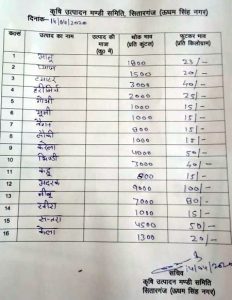 कृषि उत्पादन मण्डी समिति, सितारगंज (ऊधम सिंह नगर)
दिनांक- 14/04/2020
क्र०सं० उत्पाद का नाम उत्पाद की मात्रा (कु० में) थोक भाव (प्रति कुंतल) फुटकर भाव (प्रति किलोग्राम)
1 आलू 1800 23/-
2 प्याज 1500 20/-
3 टमाटर 3000 40/-
4 हरी मिर्च 2000 25/-
5 गोभी 1000 15/-
6 मूली 1000 15/-
7 बैंगन 800 15/-
8 लौकी 1000 15/-
9 करेला 4000 50/-
10 भिण्डी 3000 40/-
11 कद्दू 800 15/-
12 अदरक 9000 100/-
13 नींबू 7000 80/-
14 खीरा 1000 15/-
15 सन्तरा 4500 50/-
16 केला 1300 20/-
14/04/2020
सचिव
कृषि उत्पादन मण्डी समिति
सितारगंज (ऊधम सिंह नगर)